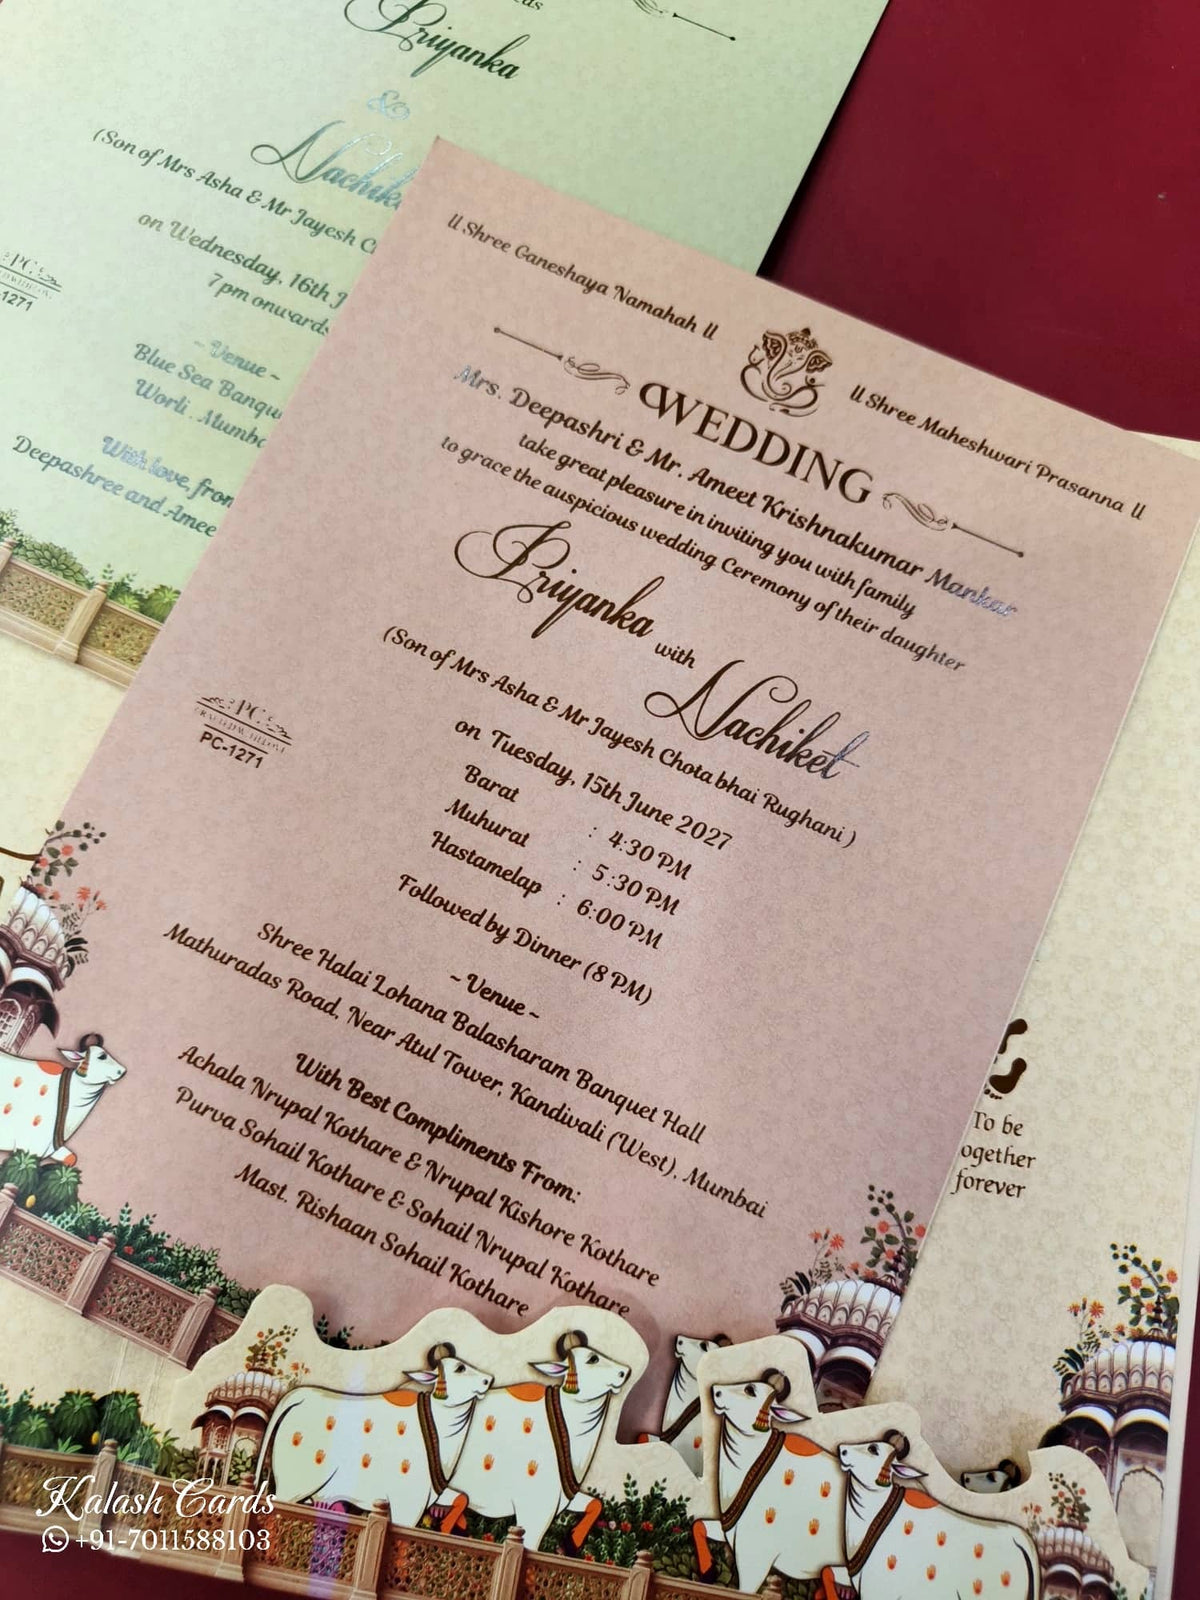 Priyanka
&
(Son of Mrs Asha & Mr Jayesh
on Wednesday, 16th
7 pm onwards
~ Venue ~
Blue Sea
Worli.
With love, from
Deepashree and
PC
-1271
ll Shree Ganeshaya Namahah ll
ll Shree Maheshwari Prasanna ll
WEDDING
Mrs. Deepashri & Mr. Ameet Krishnakumar Mankar
take great pleasure in inviting you with family
to grace the auspicious wedding Ceremony of their daughter
Priyanka with Nachiket
(Son of Mrs Asha & Mr Jayesh Chotabhai Rughani )
on Tuesday, 15th June 2027
Barat : 4:30 PM
Muhurat : 5:30 PM
Hastamelap : 6:00 PM
Followed by Dinner (8 PM)
~ Venue ~
Shree Halai Lohana Balasharam Banquet Hall
Mathuradas Road, Near Atul Tower, Kandivali (West), Mumbai
With Best Compliments From:
Achala Nrupal Kothare & Nrupal Kishore Kothare
Purva Sohail Kothare & Sohail Nrupal Kothare
Mast. Rishaan Sohail Kothare
PC
PC-1271
To be
ogether
forever
Kalash Cards
+91-7011588103